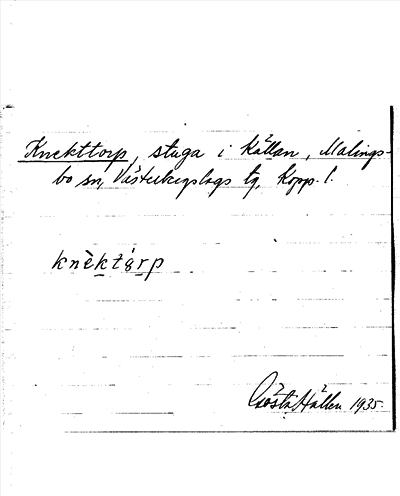 Knekttorp, stuga i Källan, Malings-
bo sn, Västerbergslags tg, Kopp. l.
knèktó̀rp
Gösta Hallen 1935.